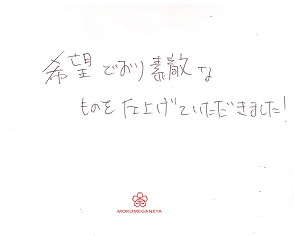 希望どおり素敵な
ものを仕上げていただきました!
MOKUMEGANEYA